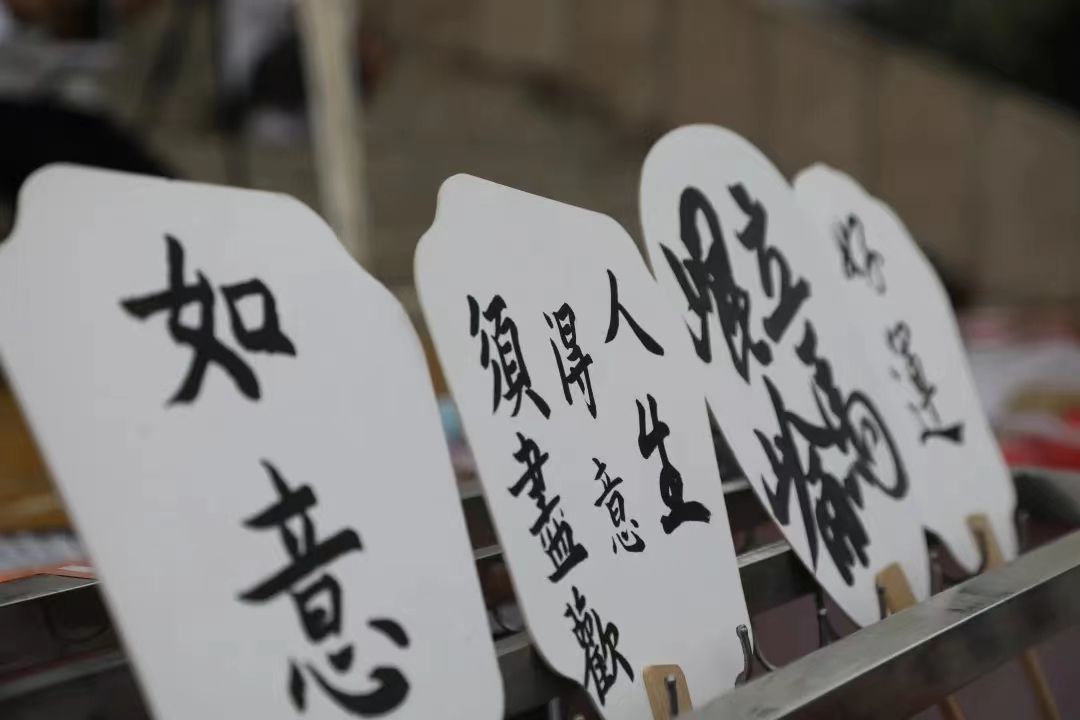 如意
人生
得意
須盡歡
好運